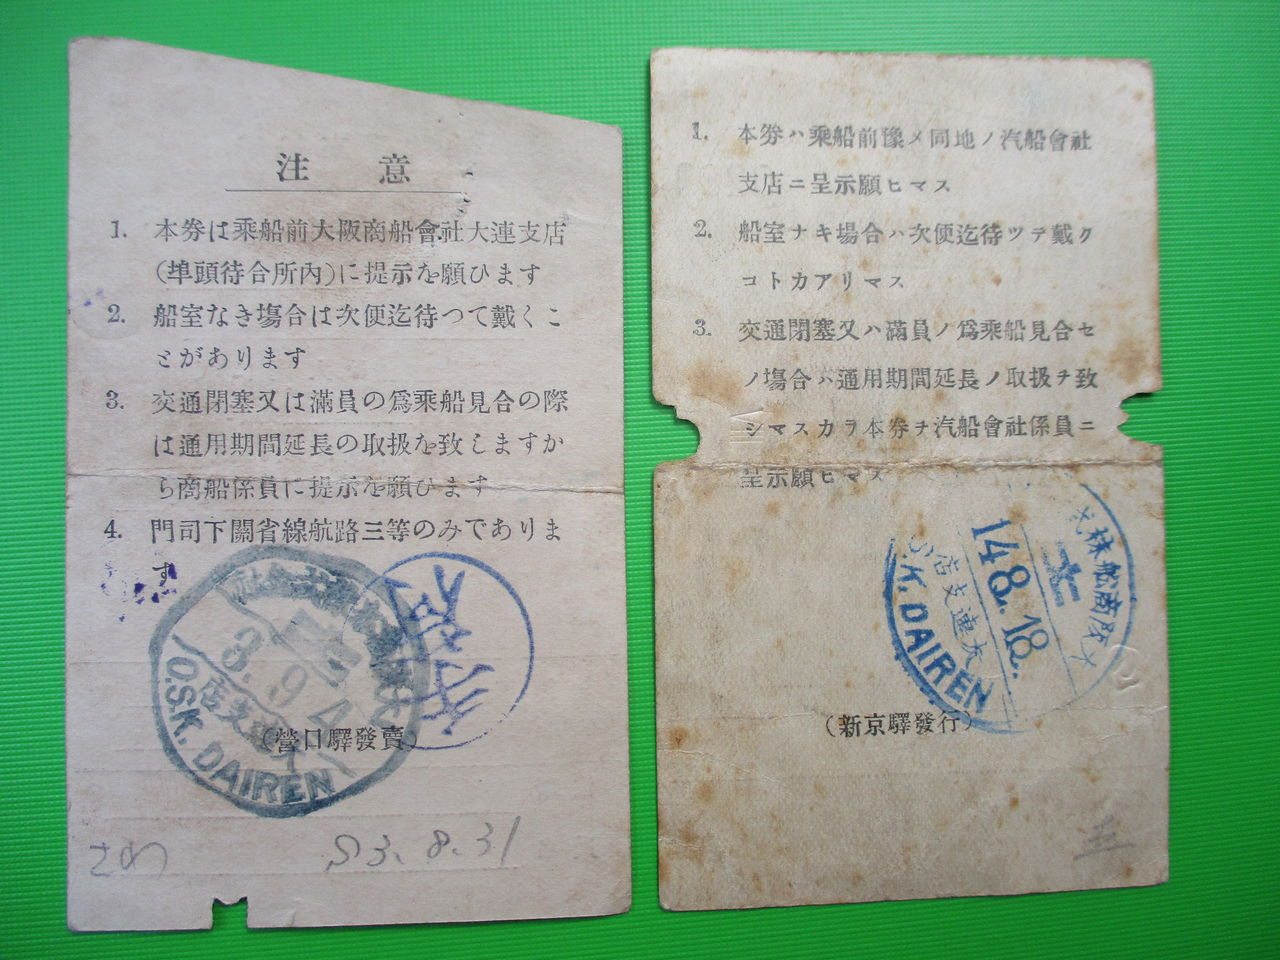 注意
1. 本券は乘船前大阪商船會社大連支店
(埠頭待合所內)に提示を願ひます
2. 船室なき場合は次便迄待つて戴くこ
とがあります
3. 交通閉塞又は滿員の爲乘船見合の際
は通用期間延長の取扱を致しますか
ら商船係員に提示を願ひます
4. 門司下關省線航路三等のみでありま
す
3.9.4
店支
O.S.K. DAIREN
(營口驛發賣)
S3.8.31
1. 本券ハ乘船前豫メ同地ノ汽船會社
支店ニ呈示願ヒマス
2. 船室ナキ場合ハ次便迄待ツテ戴ク
コトカアリマス
3. 交通閉塞又ハ滿員ノ爲乘船見合セ
ノ場合ハ通用期間延長ノ取扱チ致
シマスカラ本券チ汽船會社係員ニ
呈示願ヒマス
株船商阪大
14.8.18.
店支連大
S.K. DAIREN
(新京驛發行)